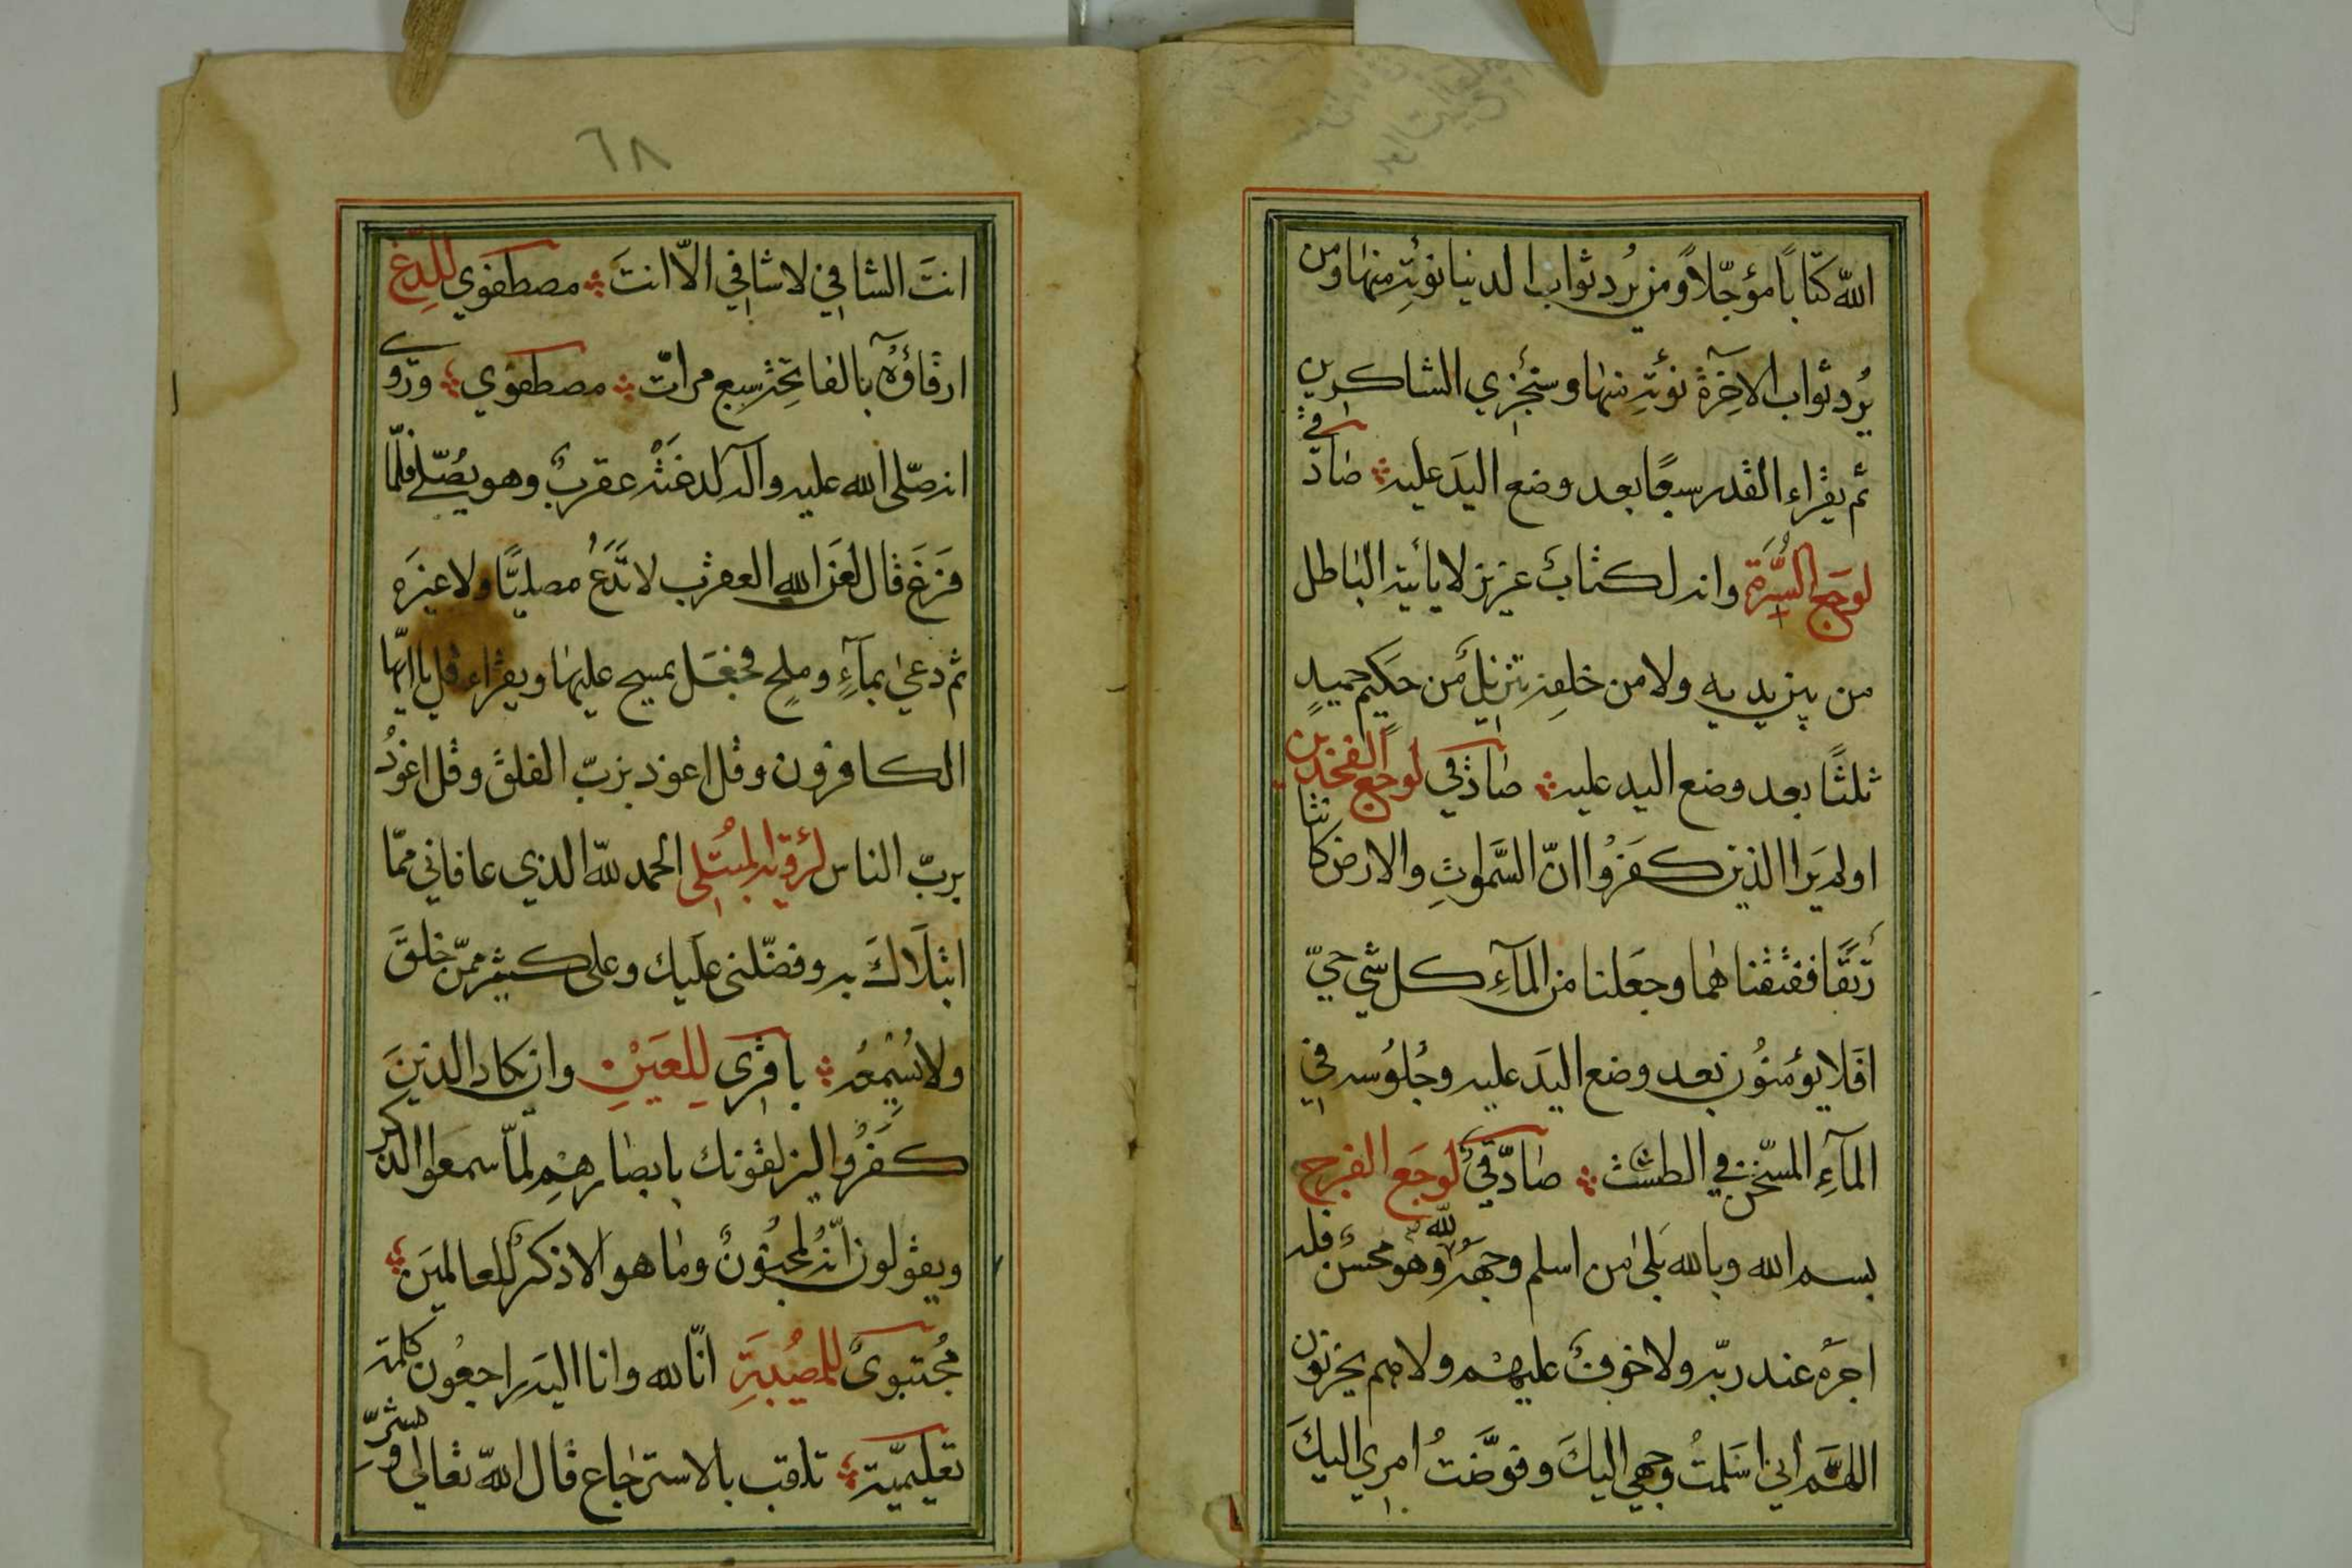 الله كتابًا مؤجّلاً ومن يُرد ثواب الدنيا نؤتِه منها ومن
يُرد ثواب الآخرة نؤتِه منها وسنجزي الشاكرين
ثم يقراء القدر سبعًا بعد وضع اليدَ عليه صادقي
لوجع السُّرّة وانه لكتابٌ عزيز لا يأتيه الباطل
من بين يديه ولا من خلفه تنزيلٌ من حكيم حميدٍ
ثلثًا بعد وضع اليد عليه صادقي لوجع الفخذين
اولم يَرا الذين كفَرُوا انّ السَّمٰوتِ والارض كانتا
رَتقًا ففتقنا هما وجعَلنا من المآءِ كل شي حيّ
افَلا يؤمنُون بعد وضع اليدَ عليه وجُلوُسه في
المآءِ المسّخن في الطشت صادقي لوجَع الفرج
بسم الله وبالله بَلىٰ من اسلم وجهَهُ لله وهو محسنٌ فله
اجرَه عند ربّه ولا خوفٌ عليهم ولا هم يحزنون
اللهَم اني اسَلمتُ وجهي اليكَ وفوَّضتُ امري اليكَ
٦٨
انتَ الشافي لا شافي الاّ انتَ مصطفوي للدغ
ارقاؤُهُ بالفاتحة سبع مراتّ مصطفوي وروى
انه صّلى الله عليه وآله لدغَتْه عقربٌ وهو يصُلّي فلمّا
فَرَغَ قال لعَن الله العقرب لا تَدَعُ مصليًا ولا غيرَه
ثم دعىٰ بمآءٍ وملحٍ فجعَل يمسح عليها ويقراء قل يا ايّها
الكافرون وقل اعوذ بربّ الفلق وقل اعوذُ
بربّ الناس لرؤية المبُتلى الحمد لله الذي عافاني ممّا
ابتلاكَ به وفضّلنى عليك وعلى كثير ممّن خلقَ
ولا يُسْمِعُه باقري للعَيْنِ وان يكاد الذينَ
كفَرُوا ليزلقونك بابصارهم لمّا سمعوا الذكر
ويقولون انّه لمجنُونٌ وما هو الا ذكرٌ للعالمينَ
مُجتبوى للمصُيبةِ انّا لله وانا اليه راجعُون كلمة
تعليميّة تلاقب بالاسترجاع قال الله تعالى وبشّر